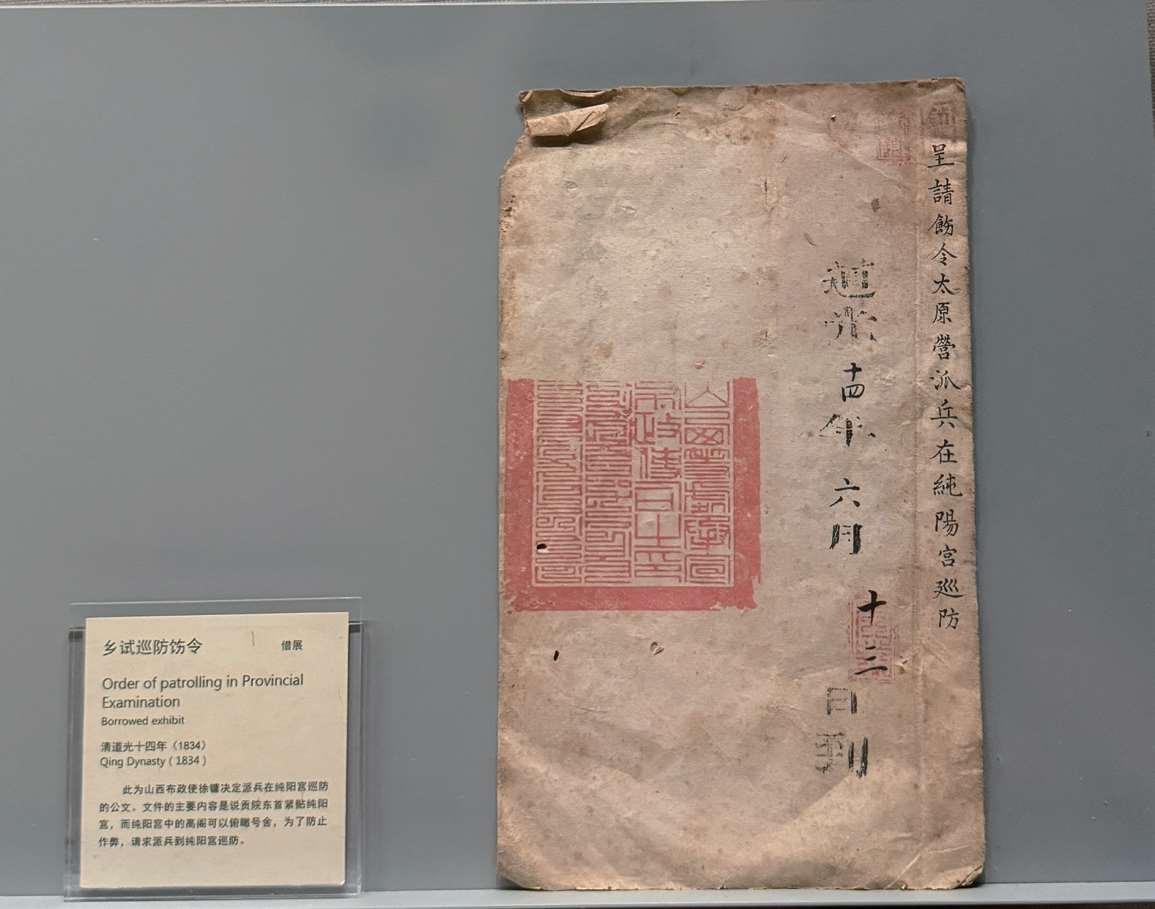 乡试巡防饬令
借展
Order of patrolling in Provincial
Examination
Borrowed exhibit
清道光十四年（1834）
Qing Dynasty（1834）
此为山西布政使徐镛决定派兵在纯阳宫巡防
的公文。文件的主要内容是说贡院东首紧贴纯阳
宫，而纯阳宫中的高阁可以俯瞰号舍，为了防止
作弊，请求派兵到纯阳宫巡防。
呈請飭令太原營派兵在純陽宮巡防
道光十四年六月十三日到